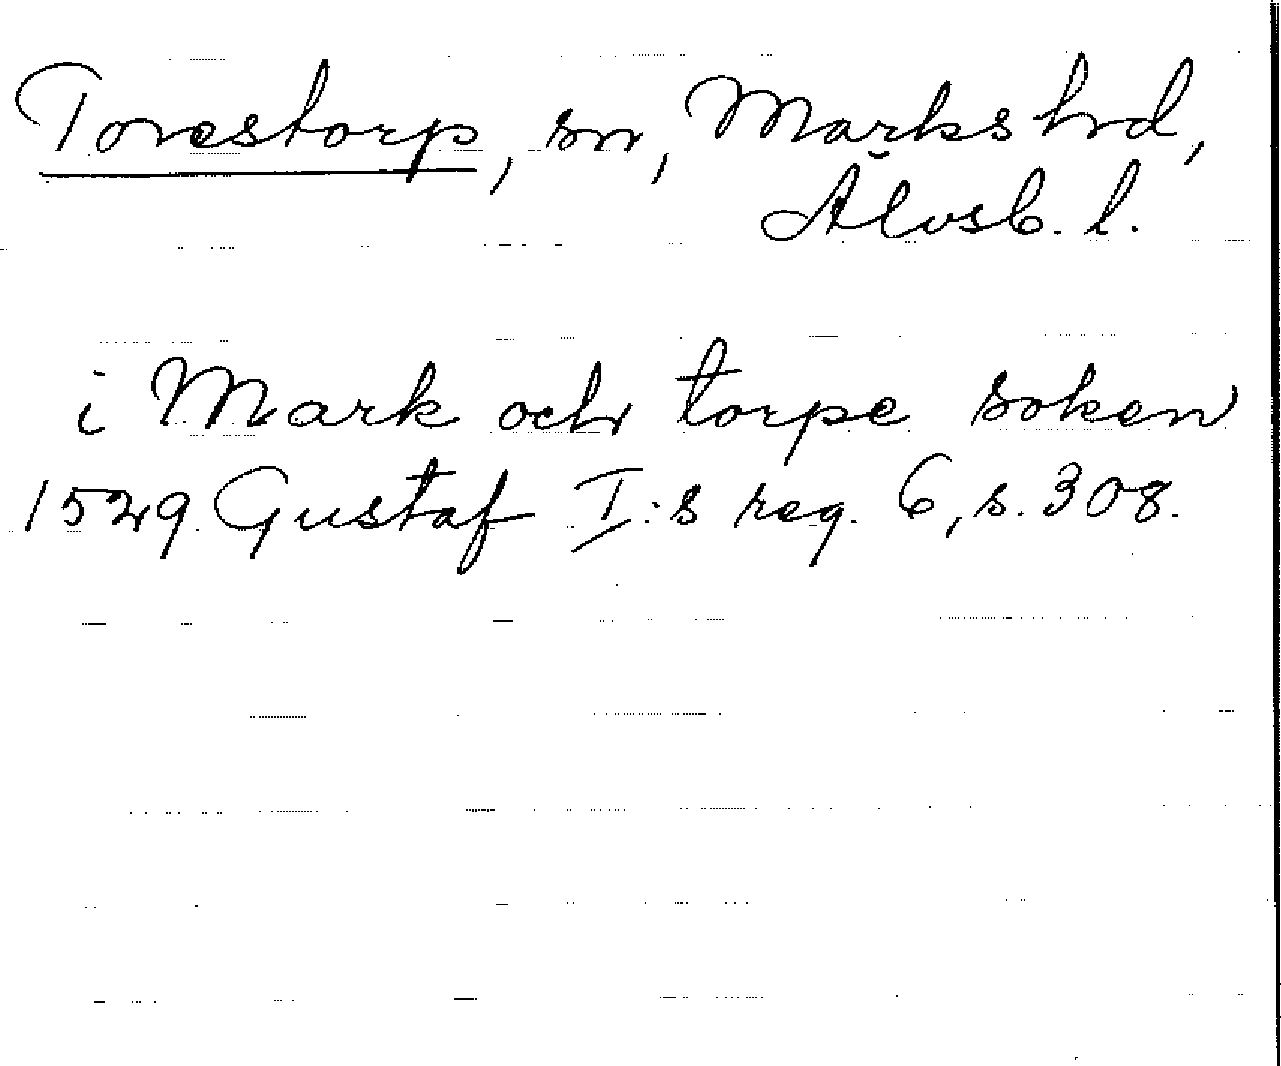 Torestorp, sn, Marks hrd,
Älvsb. l.
i Mark och torpe soken
1529. Gustaf I:s reg. 6, s. 308.